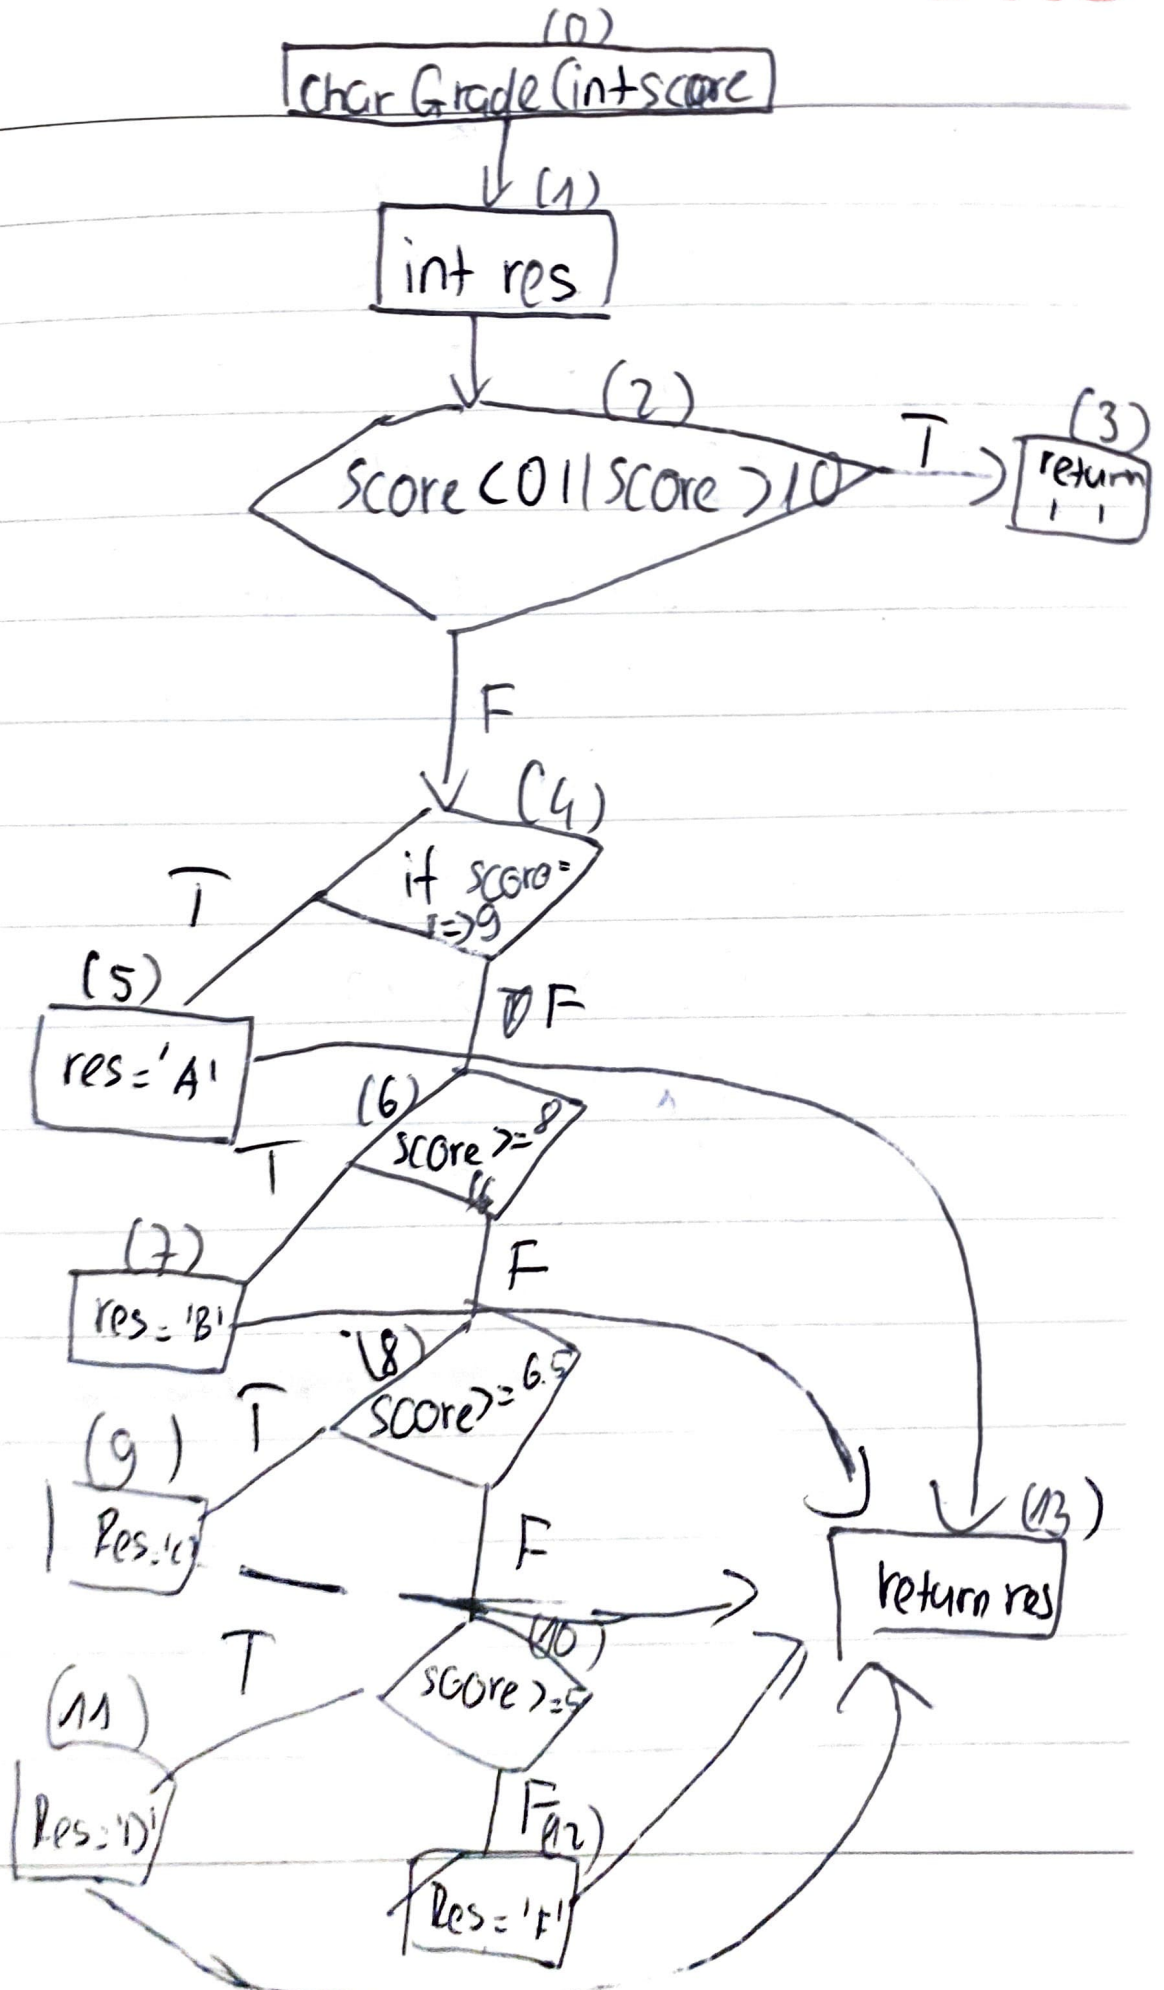 (0)
char Grade (int score
(1)
int res
(2)
score < 0 || score > 10
T
(3)
return
' '
F
(4)
if score
=> 9
T
F
(5)
res = 'A'
(6)
score >= 8
T
(7)
res = 'B'
F
(8)
score >= 6.5
T
(9)
Res = 'C'
F
(13)
return res
(10)
score >= 5
T
(11)
Res = 'D'
F
(12)
Res = 'F'